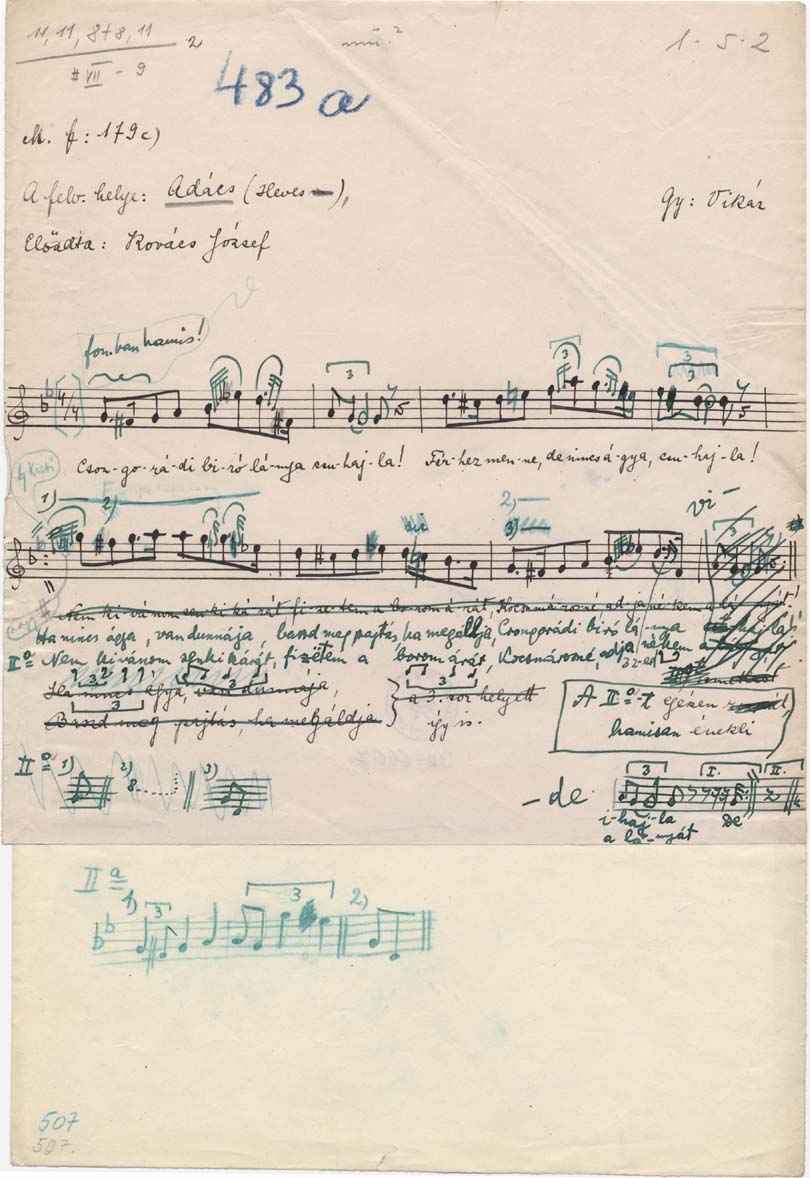 11, 11, 8+8, 11
2
mű?
1 - 5 - 2
# VII - 9
483 a
M. f: 179c)
A felv. helye: Adács (Heves),
Gy: Vikár
Előadta: Kovács József
fon. ban hamis!
4/4
3
3
3
3
Cson-go-rá-di bi-ró lá-nya csu-haj-la! Fér-hez men-ne, de nincs á-gya, csu-haj-la!
1) 2)
2)
3)
vi-
3
Nem ki-vá-nom sen-ki ká-rát fi-ze-tem a bo-rom á-rát, Kocsmárosné ad-ja né-kem a lá-nyát!
Ha nincs ágya, van dunnája, baszd meg pajtás ha megáldja, Csongorádi biró lá-nya
IIº Nem kivánom senki kárát, fizetem a borom árát, Kocsmárosné, adja nékem a
3 3 3
Ha nincs ágya, van dunnája,
a 3. sor helyett
Baszd meg pajtás, ha megáldja
így is.
A IIº-t egészen
hamisan énekli
IIº 1) 2) 8 3)
- de
3 I. II.
i-haj-la De
a lá-nyát
IIª
1) 3 3 2)
507
507.